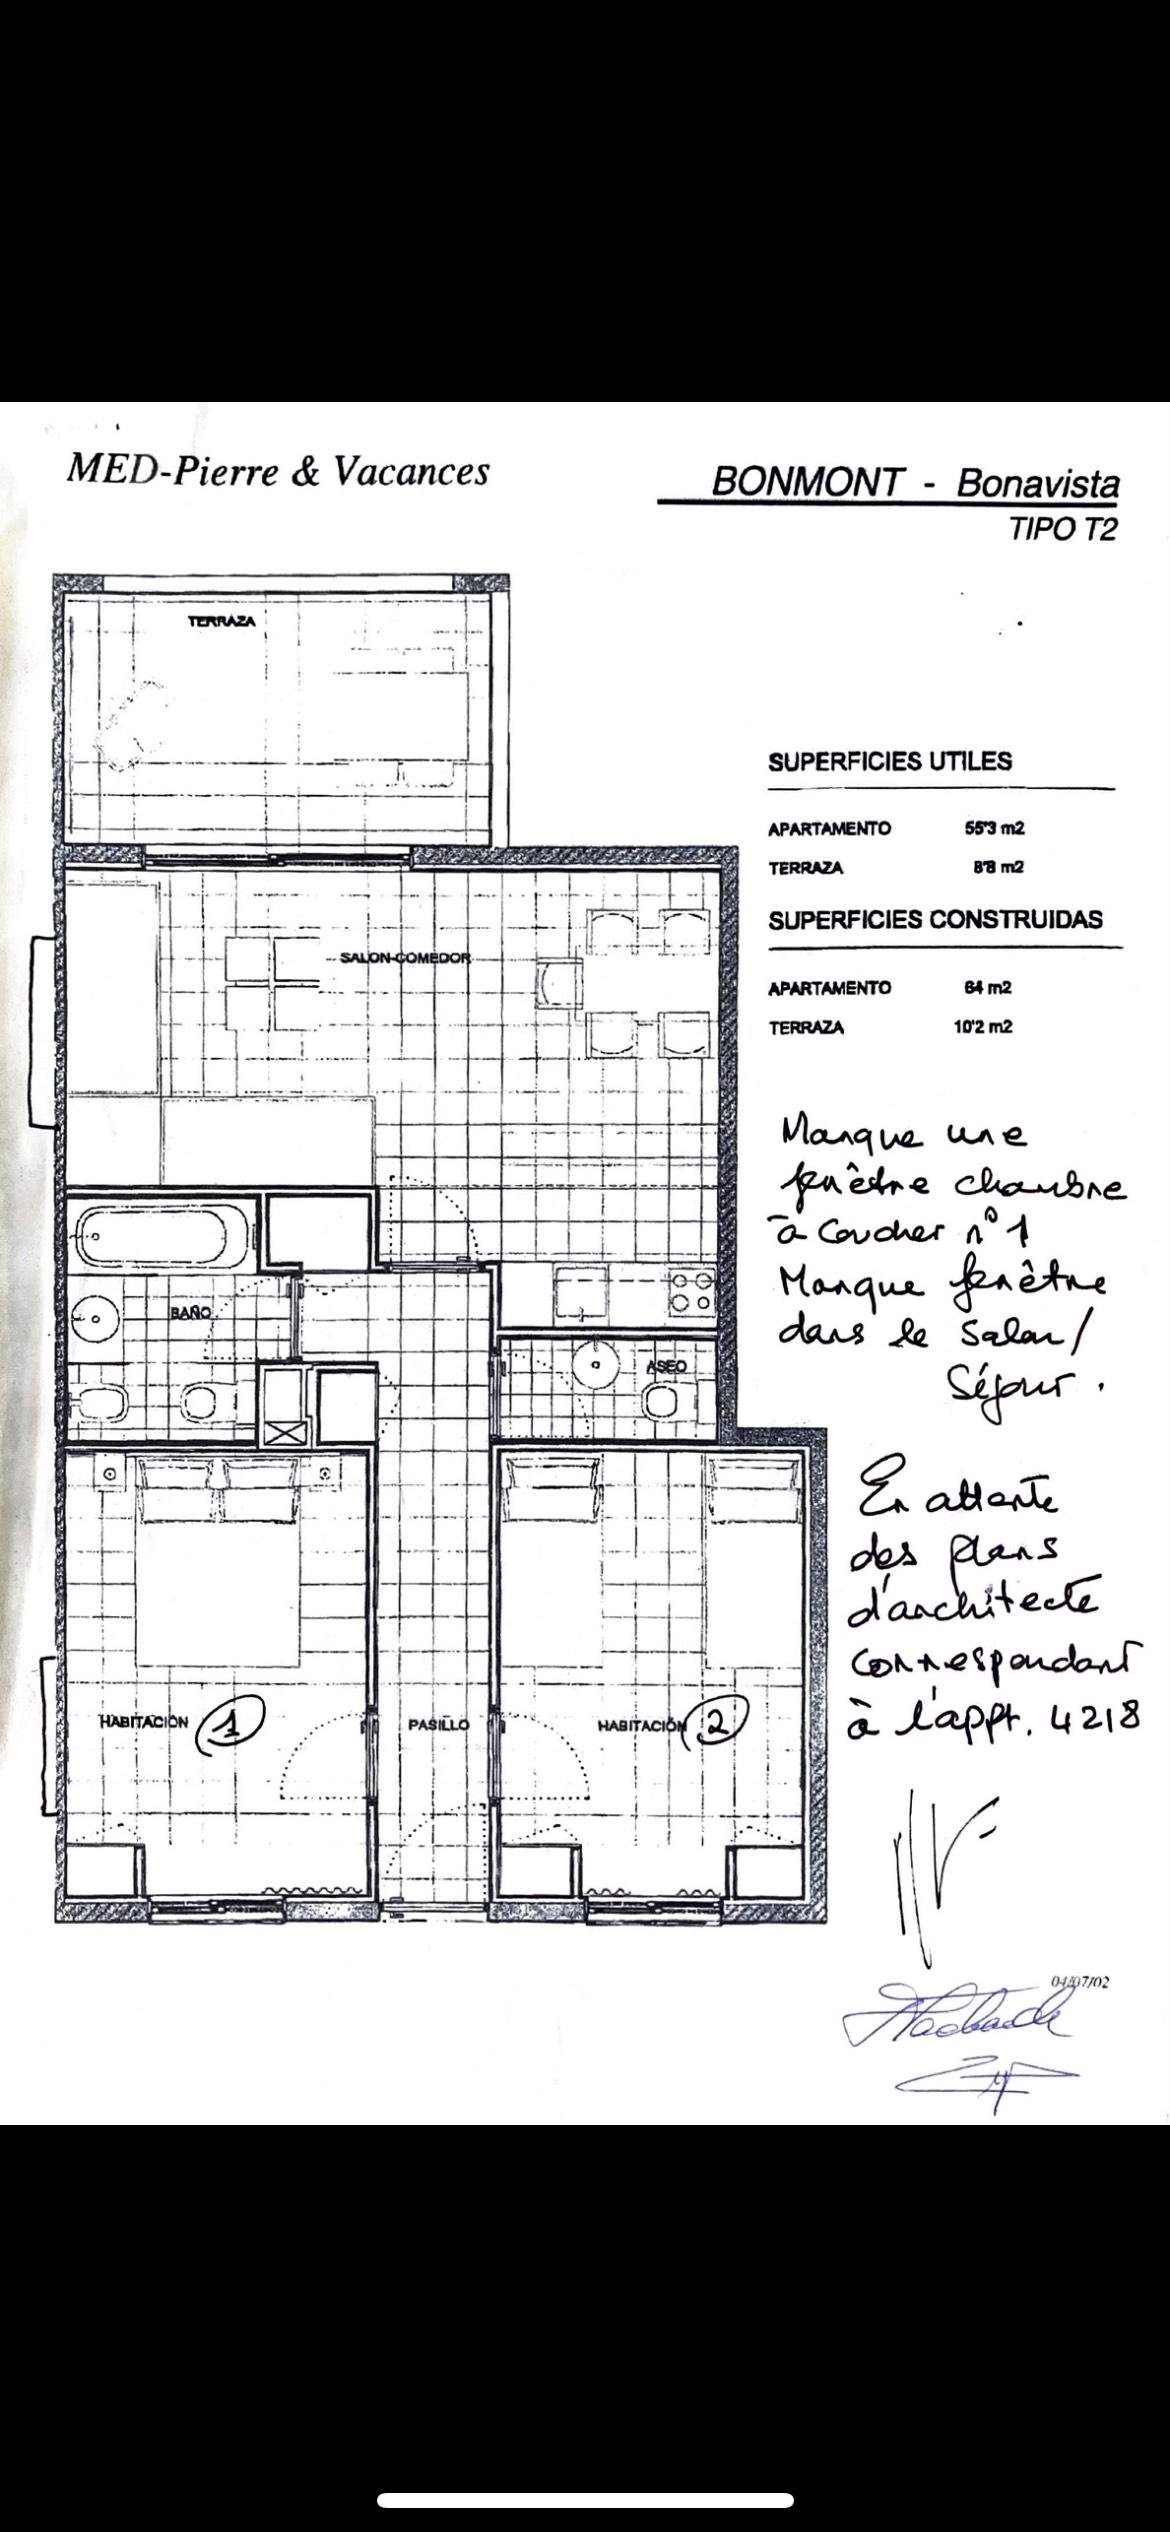 MED-Pierre & Vacances
BONMONT - Bonavista
TIPO T2
TERRAZA
SUPERFICIES UTILES
APARTAMENTO 55'3 m2
TERRAZA 8'8 m2
SUPERFICIES CONSTRUIDAS
APARTAMENTO 64 m2
TERRAZA 10'2 m2
SALON-COMEDOR
Manque une
fenêtre chambre
à coucher n° 1
Manque fenêtre
dans le Salon/
Séjour.
BAÑO
ASEO
En attente
des plans
d'architecte
correspondant
à l'appt. 4218
HABITACIÓN 1
PASILLO
HABITACIÓN 2
04/07/02